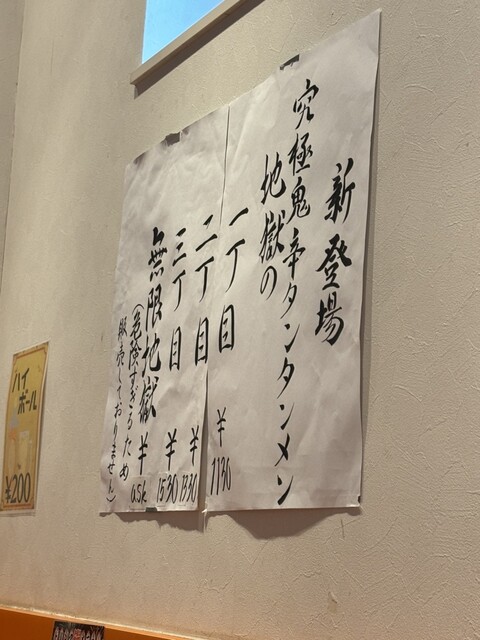 新登場
究極鬼辛タンタンメン
地獄の
一丁目 ¥1130
二丁目 ¥1330
三丁目 ¥1530
無限地獄 ¥ask
(危険すぎるため
販売しておりません)
ハイ
ボール
¥200